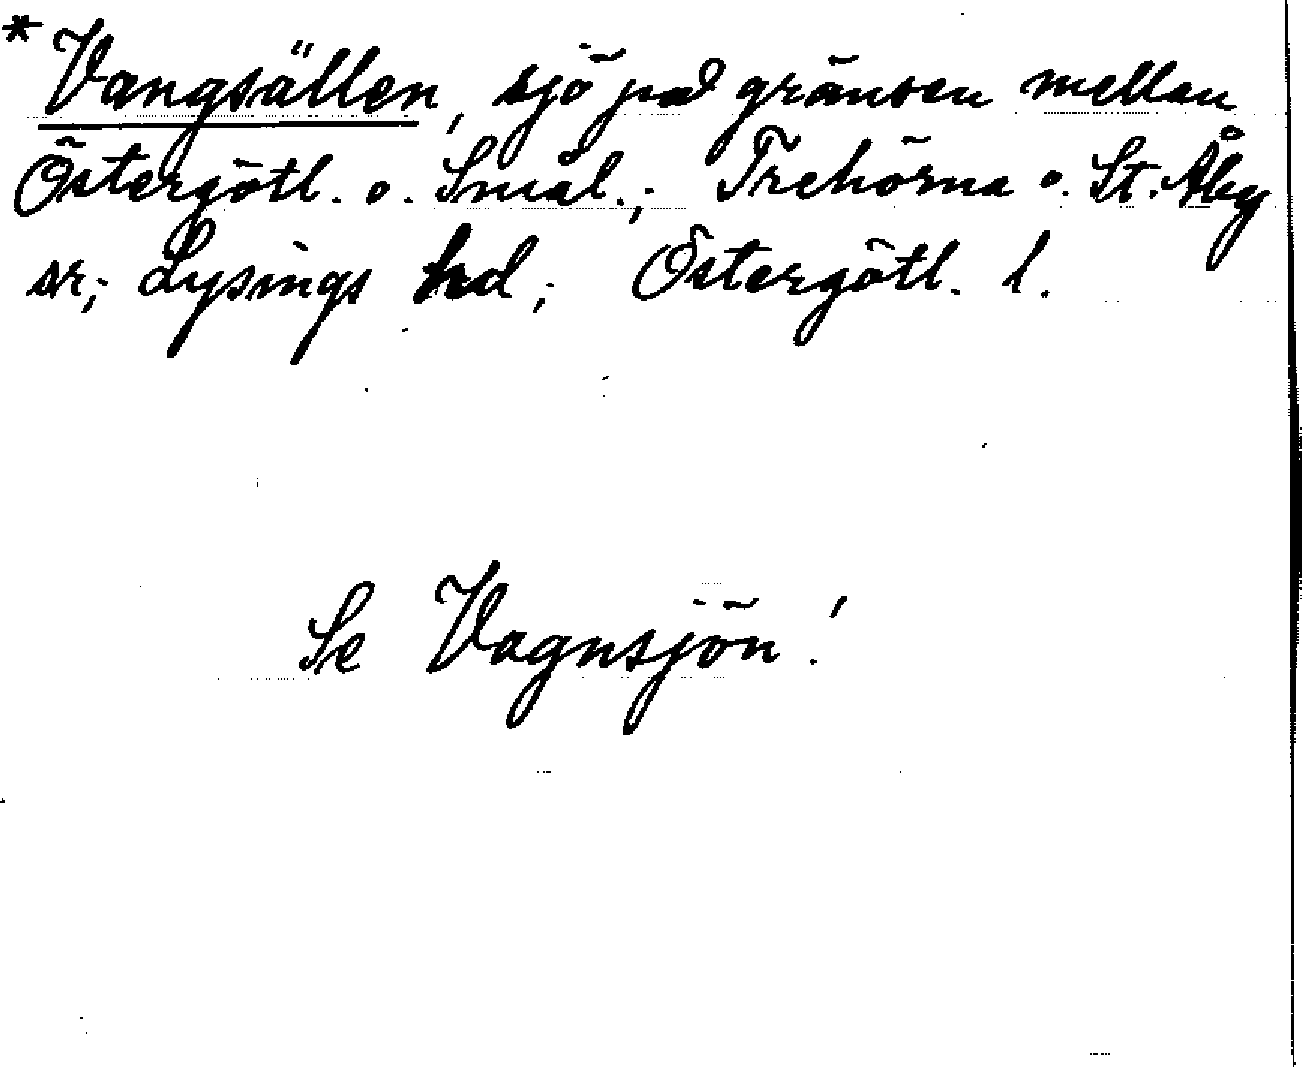 * Vangsällen, sjö på gränsen mellan
Östergötl. o. Smål.; Trehörna o. St. Åby
sr; Lysings hd; Östergötl. l.
Se Vagnsjön!